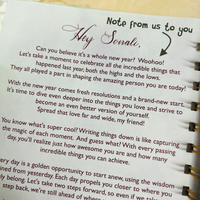 Note from us to you
Hey Sonali,
Can you believe it's a whole new year? Woohoo!
Let's take a moment to celebrate all the incredible things that
happened last year, both the highs and the lows.
They all played a part in shaping the amazing person you are today!
With the new year comes fresh resolutions and a brand-new start.
It's time to dive even deeper into the things you love and strive to
become an even better version of yourself.
Spread that love far and wide, my friend!
You know what's super cool? Writing things down is like capturing
the magic of each moment. And guess what? With every passing
day, you'll realize just how awesome you are and how many
incredible things you can achieve.
every day is a golden opportunity to start anew, using the wisdom
gained from yesterday. Each day propels you closer to where you
belong. Let's take two steps forward, so even if we take
step back, we're still ahead of where